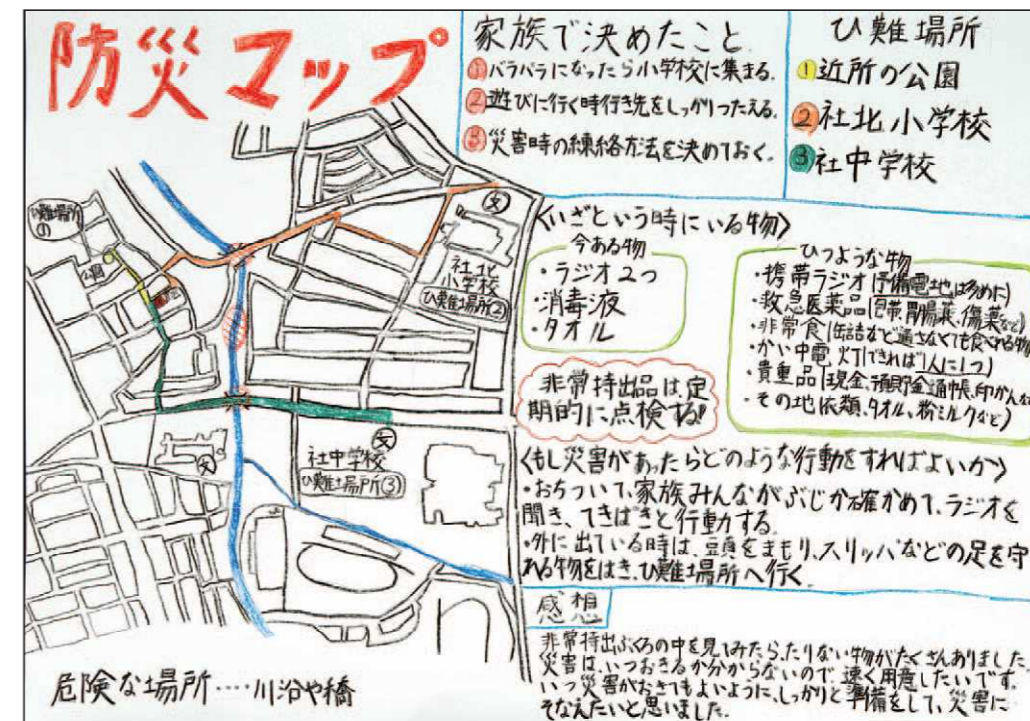 防災マップ
家族で決めたこと
①バラバラになったら小学校に集まる.
②遊びに行く時行き先をしっかりつたえる.
③災害時の練絡方法を決めておく.
ひ難場所
①近所の公園
②社北小学校
③社中学校
ひ難場所
①
公園
文
社北
小学校
ひ難場所②
文
社中学校
ひ難場所③
文
危険な場所‥‥川沿や橋
〈いざという時にいる物〉
今ある物
・ラジオ2つ
・消毒液
・タオル
ひつような物
・携帯ラジオ(予備電地は多めに)
・救急医薬品(包帯、胃腸薬、傷薬など)
・非常食(缶詰など過さなくても食べれる物
・かい中電灯(できれば1人に1つ)
・貴重品(現金、預貯金通帳、印かんな
・その他依類、タオル、粉ミルクなど)
非常持出品は、定
期的に点検する!!
〈もし災害があったらどのような行動をすればよいか〉
・おちついて、家族みんながぶじか確かめて、ラジオを
聞き、てきぱきと行動する.
・外に出ている時は、頭をまもり、スリッパなどの足を守
れる物をはき、ひ難場所へ行く.
感想
非常持出ぶくろの中を見てみたら、たりない物がたくさんありました.
災害は、いつおきるか分からないので、速く用意したいです.
いつ災害がおきてもよいように、しっかりと準備をして、災害に
そなえたいと思いました.